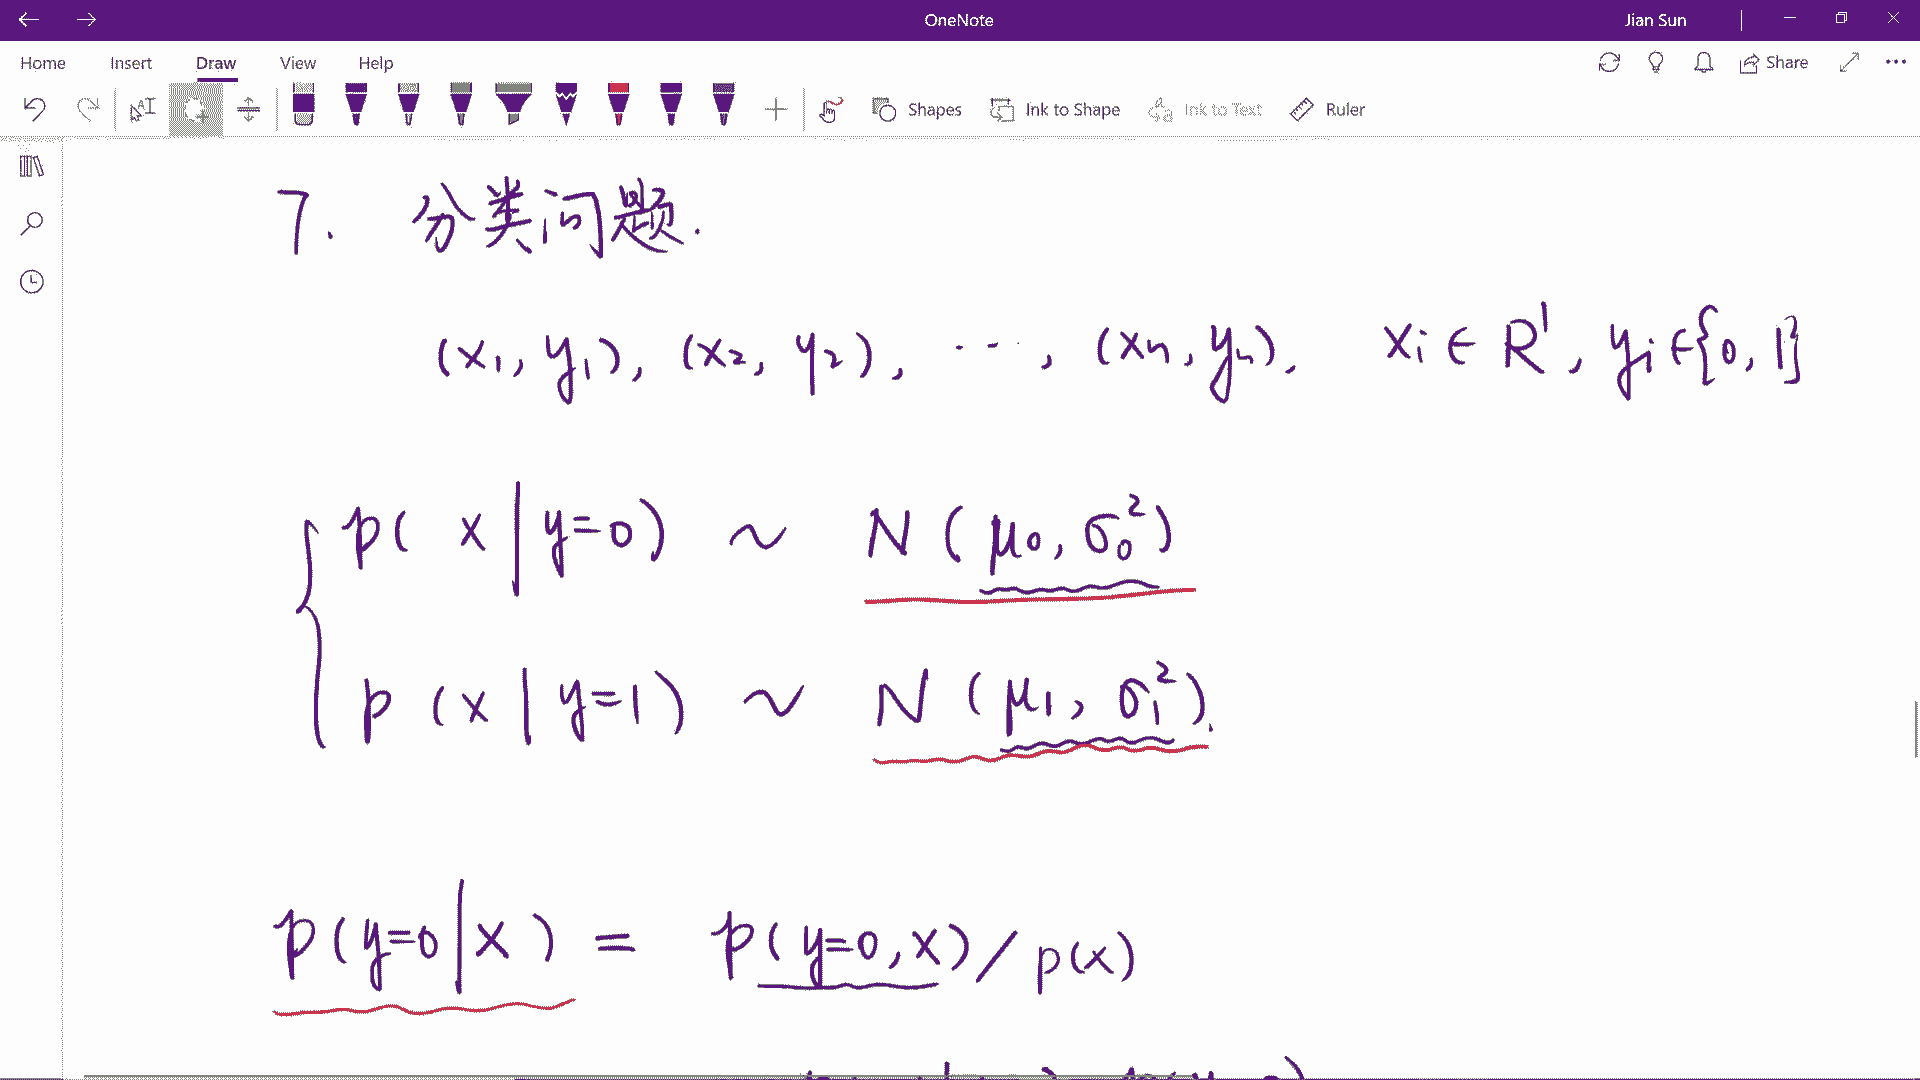 OneNote
Jian Sun
Home Insert Draw View Help
Share
Shapes Ink to Shape Ink to Text Ruler
7. 分类问题.
(x₁, y₁), (x₂, y₂), ···, (xₙ, yₙ). xᵢ ∈ R¹, yᵢ ∈ {0, 1}
p( x | y=0 ) ~ N ( μ₀, σ₀² )
p ( x | y=1 ) ~ N ( μ₁, σ₁² ).
p ( y=0 | x ) = p( y=0, x ) / p(x)